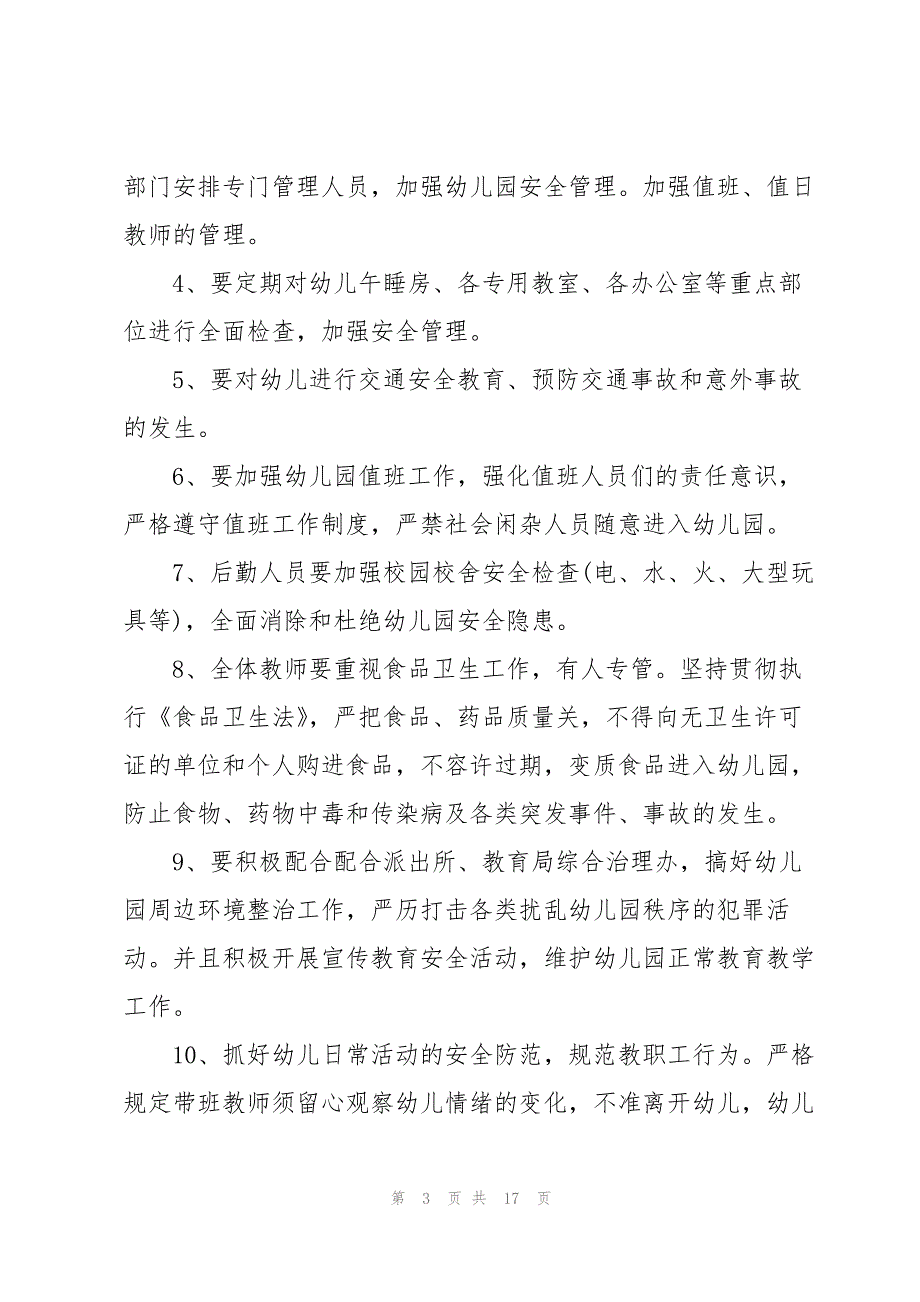 部门安排专门管理人员，加强幼儿园安全管理。加强值班、值日
教师的管理。
4、要定期对幼儿午睡房、各专用教室、各办公室等重点部
位进行全面检查，加强安全管理。
5、要对幼儿进行交通安全教育、预防交通事故和意外事故
的发生。
6、要加强幼儿园值班工作，强化值班人员们的责任意识，
严格遵守值班工作制度，严禁社会闲杂人员随意进入幼儿园。
7、后勤人员要加强校园校舍安全检查(电、水、火、大型玩
具等)，全面消除和杜绝幼儿园安全隐患。
8、全体教师要重视食品卫生工作，有人专管。坚持贯彻执
行《食品卫生法》，严把食品、药品质量关，不得向无卫生许可
证的单位和个人购进食品，不容许过期，变质食品进入幼儿园，
防止食物、药物中毒和传染病及各类突发事件、事故的发生。
9、要积极配合配合派出所、教育局综合治理办，搞好幼儿
园周边环境整治工作，严历打击各类扰乱幼儿园秩序的犯罪活
动。并且积极开展宣传教育安全活动，维护幼儿园正常教育教学
工作。
10、抓好幼儿日常活动的安全防范，规范教职工行为。严格
规定带班教师须留心观察幼儿情绪的变化，不准离开幼儿，幼儿
第 3 页 共 17 页